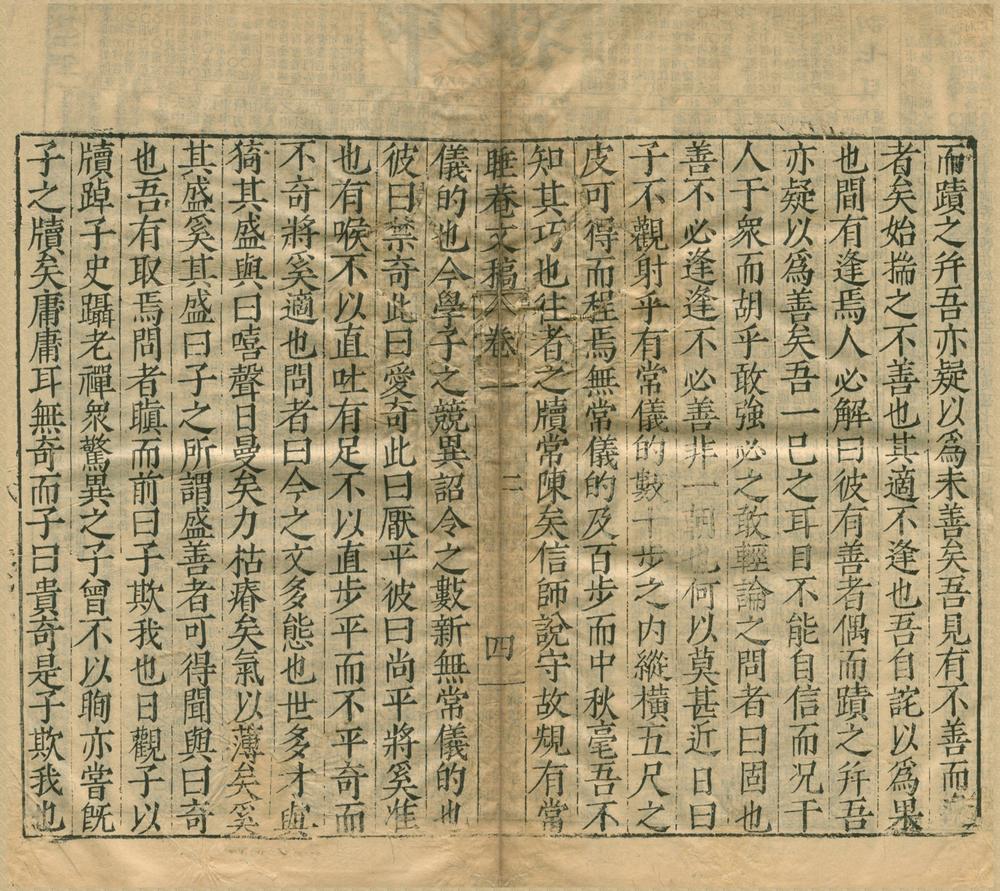 而蹟之幷吾亦疑以爲未善矣吾見有不善而
者矣始揣之不善也其適不逢也吾自詫以爲果
也間有逢焉人必解曰彼有善者偶而蹟之幷吾
亦疑以爲善矣吾一己之耳目不能自信而况干
人于衆而胡乎敢強必之敢輕論之問者曰固也
善不必逢逢不必善非一朝也何以莫甚近日曰
子不觀射乎有常儀的數十步之内縱横五尺之
皮可得而程焉無常儀的及百步而中秋毫吾不
知其巧也往者之牘常陳矣信師說守故䂓有常
睡菴文稿 卷一 二 四
儀的也今學子之競異詔令之數新無常儀的也
彼曰禁奇此曰愛奇此曰厭平彼曰尚平將奚准
也有喉不以直吐有足不以直步平而不平奇而
不奇將奚適也問者曰今之文多態也世多才與
猗其盛與曰嘻聲日曼矣力枯瘠矣氣以薄矣奚
其盛奚其盛曰子之所謂盛善者可得聞與曰奇
也吾有取焉問者瞋而前曰子欺我也日觀子以
牘踔子史躡老禪衆驚異之子曾不以眴亦嘗旣
子之牘矣庸庸耳無奇而子曰貴奇是子欺我也